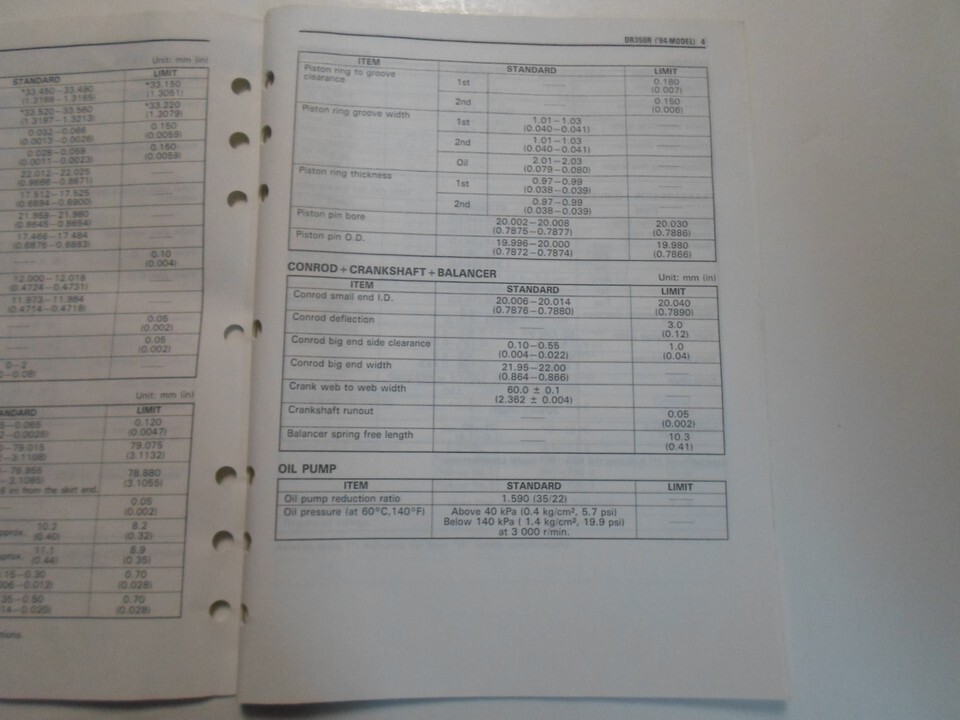 Unit: mm (in)
STANDARD LIMIT
*33.450－33.490 (1.3169－1.3185) *33.150 (1.3051)
*33.520－33.560 (1.3197－1.3213) *33.220 (1.3079)
0.032－0.066 (0.0013－0.0026) 0.150 (0.0059)
0.028－0.059 (0.0011－0.0023) 0.150 (0.0059)
22.012－22.025 (0.8666－0.8671)
17.512－17.525 (0.6894－0.6900)
21.959－21.980 (0.8645－0.8654)
17.466－17.484 (0.6876－0.6883)
0.10 (0.004)
12.000－12.018 (0.4724－0.4731)
11.973－11.984 (0.4714－0.4718)
0.05 (0.002)
0.05 (0.002)
0－2
Unit: mm (in)
LIMIT
0.120 (0.0047)
79.075 (3.1132)
78.880 (3.1055)
from the skirt end.
0.05 (0.002)
10.2 (0.40) 8.2 (0.32)
11.1 (0.44) 8.9 (0.35)
0.70 (0.028)
0.70 (0.028)
DR350R ('94-MODEL) 4
ITEM STANDARD LIMIT
Piston ring to groove clearance 1st 0.180 (0.007)
2nd 0.150 (0.006)
Piston ring groove width 1st 1.01－1.03 (0.040－0.041)
2nd 1.01－1.03 (0.040－0.041)
Oil 2.01－2.03 (0.079－0.080)
Piston ring thickness 1st 0.97－0.99 (0.038－0.039)
2nd 0.97－0.99 (0.038－0.039)
Piston pin bore 20.002－20.008 (0.7875－0.7877) 20.030 (0.7886)
Piston pin O.D. 19.996－20.000 (0.7872－0.7874) 19.980 (0.7866)
CONROD + CRANKSHAFT + BALANCER Unit: mm (in)
ITEM STANDARD LIMIT
Conrod small end I.D. 20.006－20.014 (0.7876－0.7880) 20.040 (0.7890)
Conrod deflection 3.0 (0.12)
Conrod big end side clearance 0.10－0.55 (0.004－0.022) 1.0 (0.04)
Conrod big end width 21.95－22.00 (0.864－0.866)
Crank web to web width 60.0 ± 0.1 (2.362 ± 0.004)
Crankshaft runout 0.05 (0.002)
Balancer spring free length 10.3 (0.41)
OIL PUMP
ITEM STANDARD LIMIT
Oil pump reduction ratio 1.590 (35/22)
Oil pressure (at 60°C,140°F) Above 40 kPa (0.4 kg/cm², 5.7 psi)
Below 140 kPa ( 1.4 kg/cm², 19.9 psi)
at 3 000 r/min.